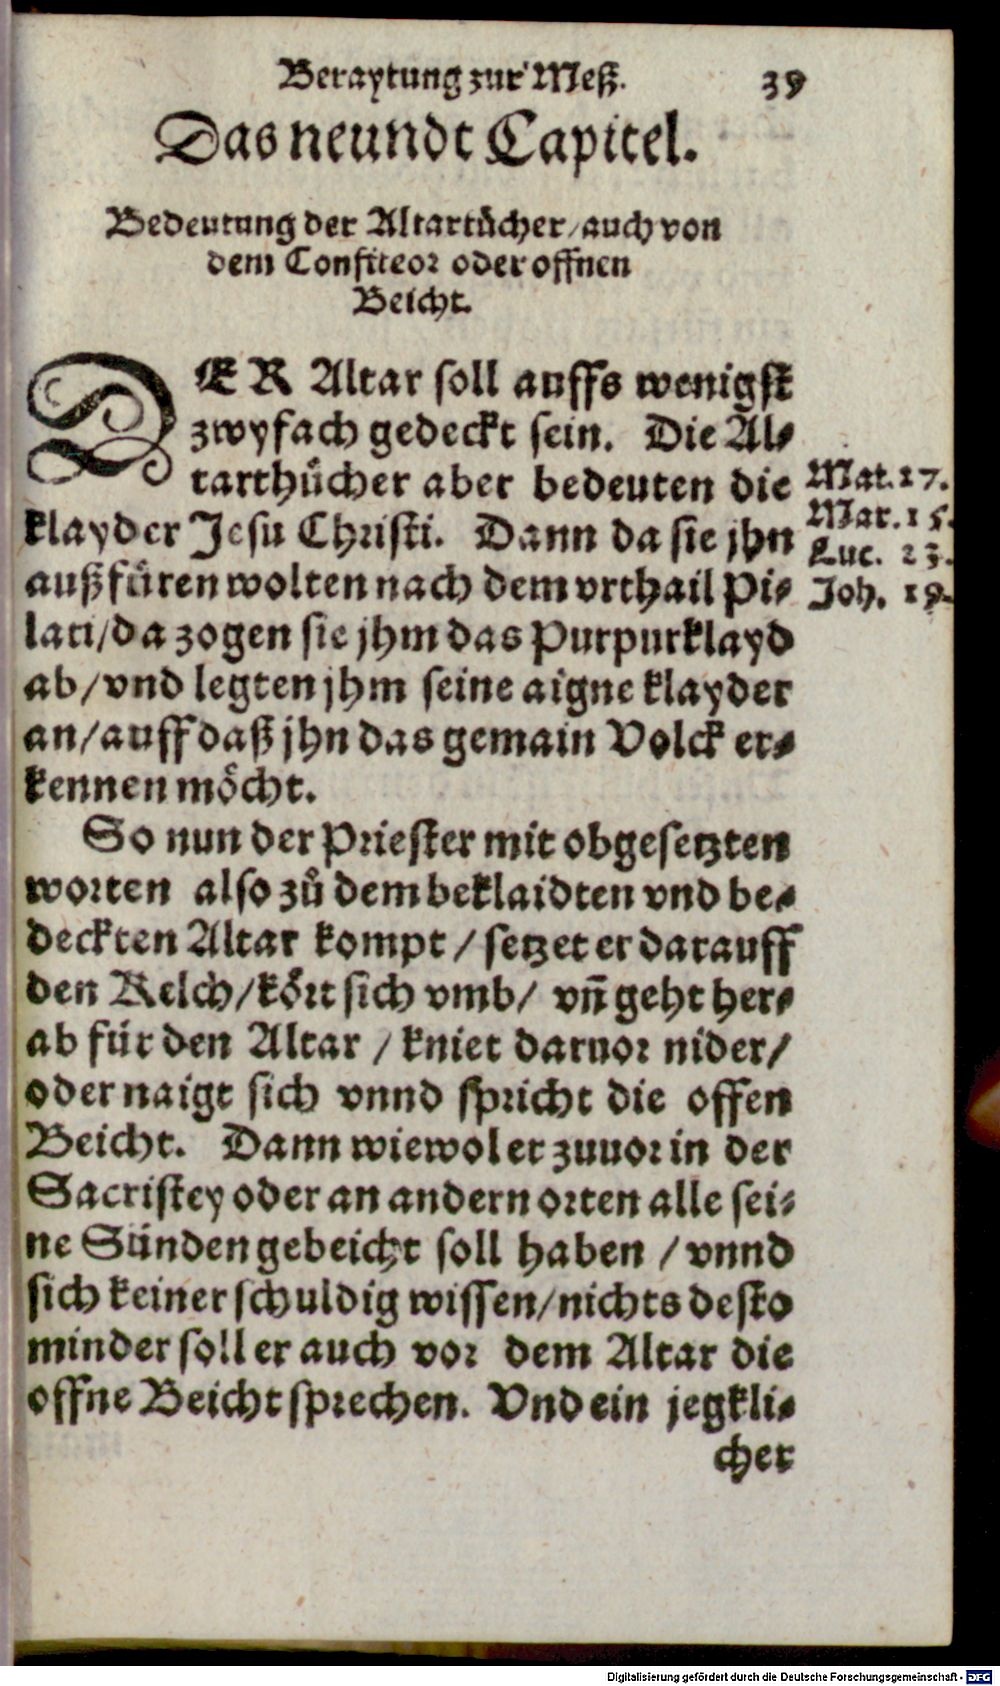 Beraytung zur Meß. 39
Das neundt Capitel.
Bedeutung der Altartuͤcher/auch von
dem Confiteor oder offnen
Beicht.
DER Altar soll auffs wenigst
zwyfach gedeckt sein. Die Al⸗
tarthuͤcher aber bedeuten die
klayder Jesu Christi. Dann da sie jhn
außfuͤren wolten nach dem vrthail Pi⸗
lati/da zogen sie jhm das Purpurklayd
ab/vnd legten jhm seine aigne klayder
an/auff daß jhn das gemain Volck er⸗
kennen moͤcht.
Mat. 27.
Mar. 15.
Luc. 23.
Joh. 19.
So nun der Priester mit obgesetzten
worten also zuͦ dem beklaidten vnd be⸗
deckten Altar kompt/setzet er darauff
den Kelch/koͤrt sich vmb/ vñ geht her⸗
ab für den Altar/kniet daruor nider/
oder naigt sich vnnd spricht die offen
Beicht. Dann wiewol er zuuor in der
Sacristey oder an andern orten alle sei⸗
ne Sünden gebeicht soll haben/vnnd
sich keiner schuldig wissen/nichts desto
minder soll er auch vor dem Altar die
offne Beicht sprechen. Vnd ein jegkli⸗
cher
Digitalisierung gefördert durch die Deutsche Forschungsgemeinschaft - DFG